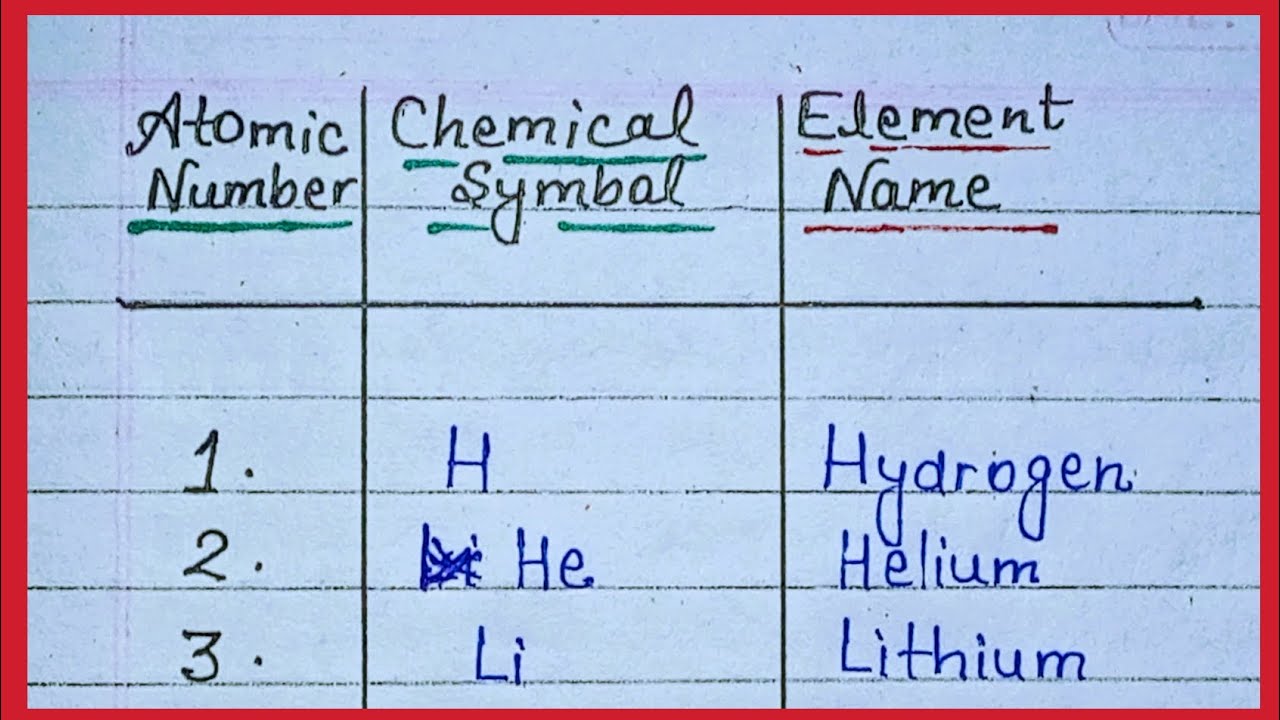 Atomic Number | Chemical Symbal | Element Name
1. | H | Hydrogen
2. | He | Helium
3. | Li | Lithium